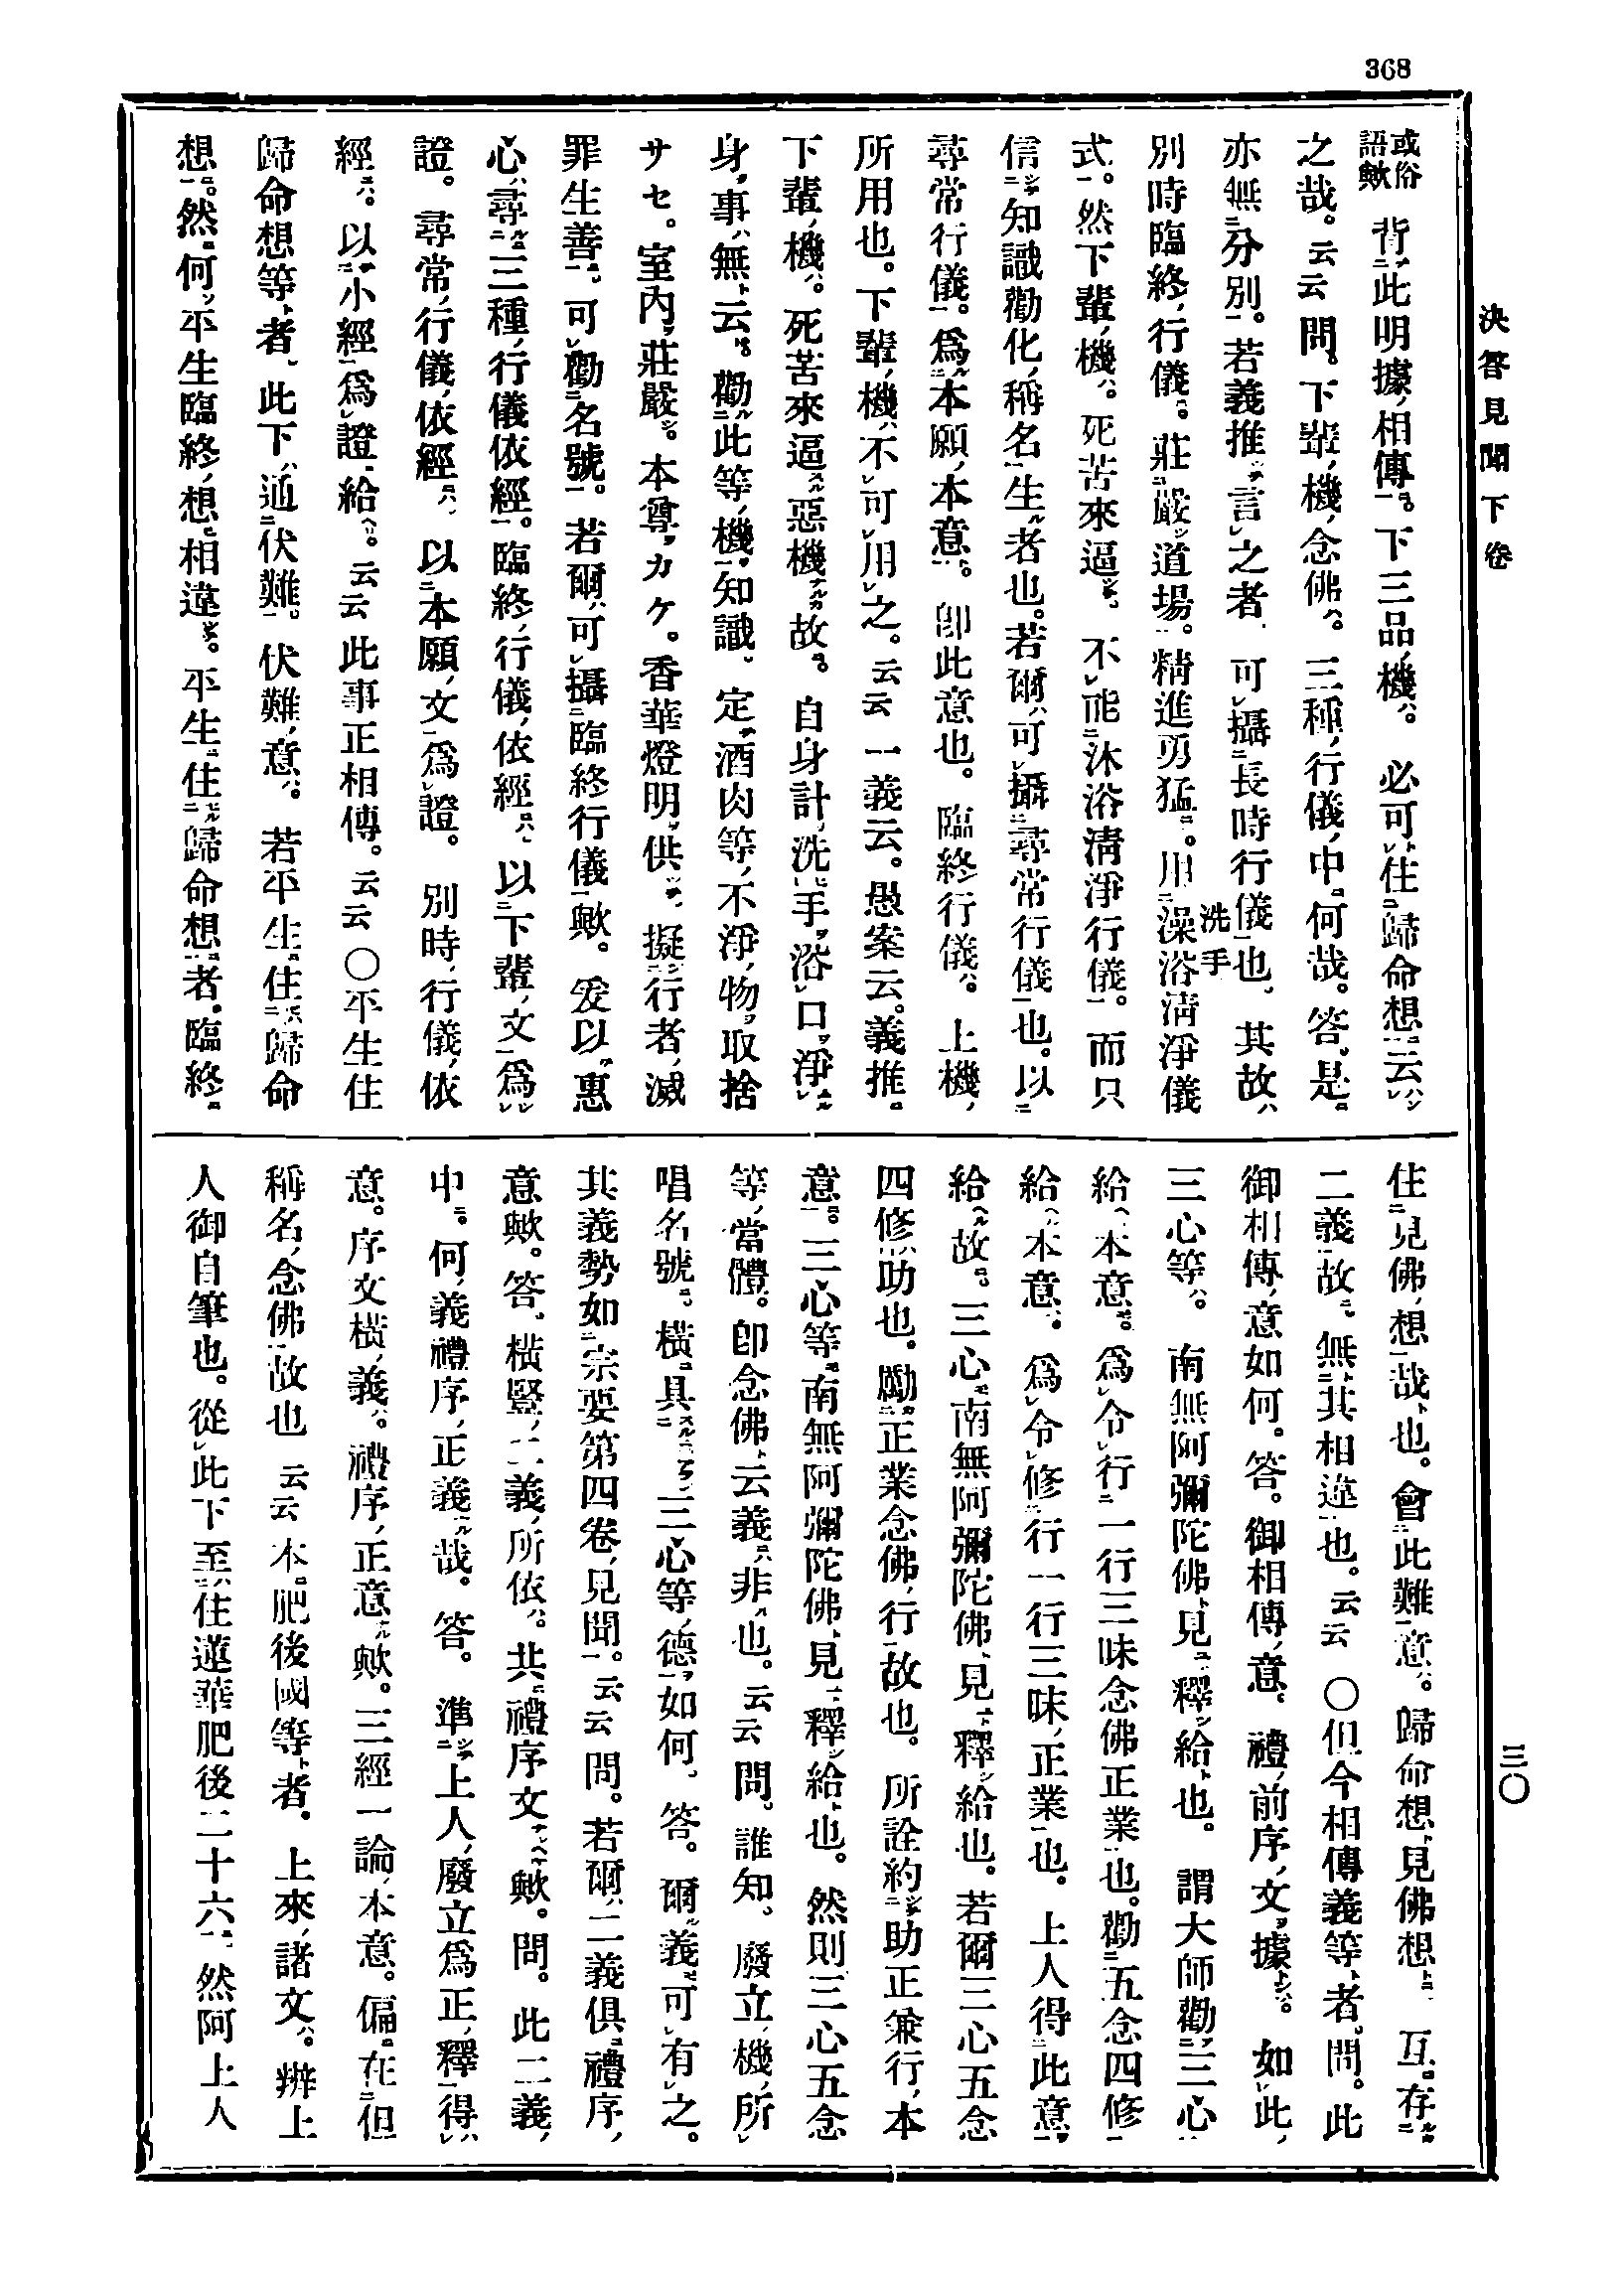 368
決答見聞下卷
三〇
或俗語歟 背此明據相傳。下三品機。必可住歸命想云
之哉。云云 問。下輩機念佛。三種行儀中何哉。答。是
亦無分別。若義推言之者。可攝長時行儀也。其故
別時臨終行儀。莊嚴道場。精進勇猛。用澡浴清淨儀
洗手
式。然下輩機。死苦來逼。不能沐浴清淨行儀。而只
信知識勸化稱名生者也。若爾可攝尋常行儀也。以
尋常行儀。爲本願本意。卽此意也。臨終行儀。上機
所用也。下輩機不可用之。云云 一義云。愚案云。義推
下輩機。死苦來逼惡機故。自身計洗手浴口淨
身事無云。勸此等機知識。定酒肉等不淨物取捨
サセ。室內莊嚴。本尊カケ。香華燈明供。擬行者滅
罪生善。可勸名號。若爾可攝臨終行儀歟。爰以惠
心尋三種行儀依經。臨終行儀依經。以下輩文爲
證。尋常行儀依經。以本願文爲證。別時行儀依
經。以小經爲證給。云云 此事正相傳。云云 〇平生住
歸命想等者。此下通伏難。伏難意。若平生住歸命
想。然何平生臨終想相違。平生住歸命想者。臨終
住見佛想哉也。會此難意。歸命想見佛想。互存
二義故。無其相違也。云云 〇但今相傳義等者。問。此
御相傳意如何。答。御相傳意。禮前序文據。如此
三心等。南無阿彌陀佛見釋給也。謂大師勸三心
給本意。爲令行一行三昧念佛正業也。勸五念四修
給本意。爲令修行一行三昧正業也。上人得此意
給故。三心南無阿彌陀佛見釋給也。若爾三心五念
四修助也。勵正業念佛行故也。所詮約助正兼行本
意。三心等南無阿彌陀佛見釋給也。然則三心五念
等當體。卽念佛云義非也。云云 問。誰知。廢立機所
唱名號。橫具三心等德如何。答。爾義可有之。
其義勢如宗要第四卷見聞。云云 問。若爾二義俱禮序
意歟。答。橫豎二義所依。共禮序文歟。問。此二義
中。何義禮序正義哉。答。準上人廢立爲正釋得
意。序文橫義。禮序正意歟。三經一論本意。偏在但
稱名念佛故也 云云 本。肥後國等者。上來諸文。辨上
人御自筆也。從此下至住蓮華肥後二十六。然阿上人